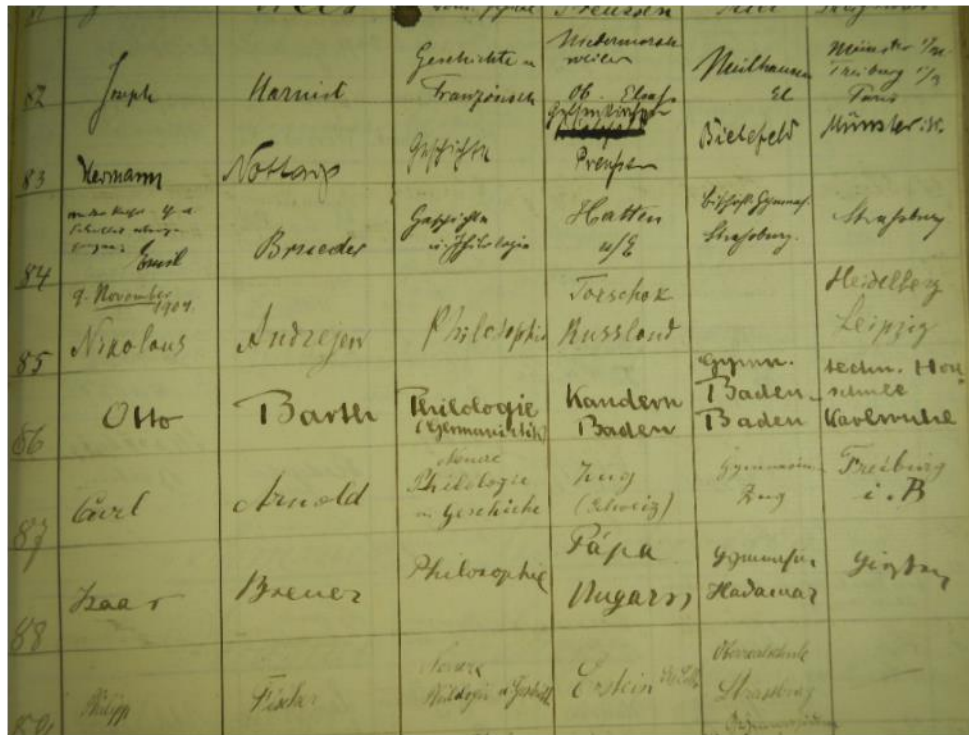 Preussen
82 Joseph Harnist Geschichte u Französisch Niedermorschweiler Ob. Elsass Mülhausen El Münster Freiburg Paris
83 Hermann Nottarp Geschichte Gelsenkirchen Preußen Bielefeld Münster i.W.
84 Emil Brueder Geschichte u. Philologie Hatten u/E Bischöfl. Gymnas. Straßburg. Straßburg
9. November 1909.
85 Nikolaus Andrejew Philosophie Torschok Russland Heidelberg Leipzig
86 Otto Barth Philologie (Germanistik) Kandern Baden Gymn. Baden-Baden techn. Hochschule Karlsruhe
87 Carl Arnold Neuere Philologie u. Geschichte Zug (Schweiz) Gymnasium Zug Freiburg i. B
88 Isaac Breuer Philosophie Pápa Ungarn Gymnasium Hadamar Gießen
Philipp Fischer Neuere Philologie u Geschichte Erstein Oberrealschule Strassburg